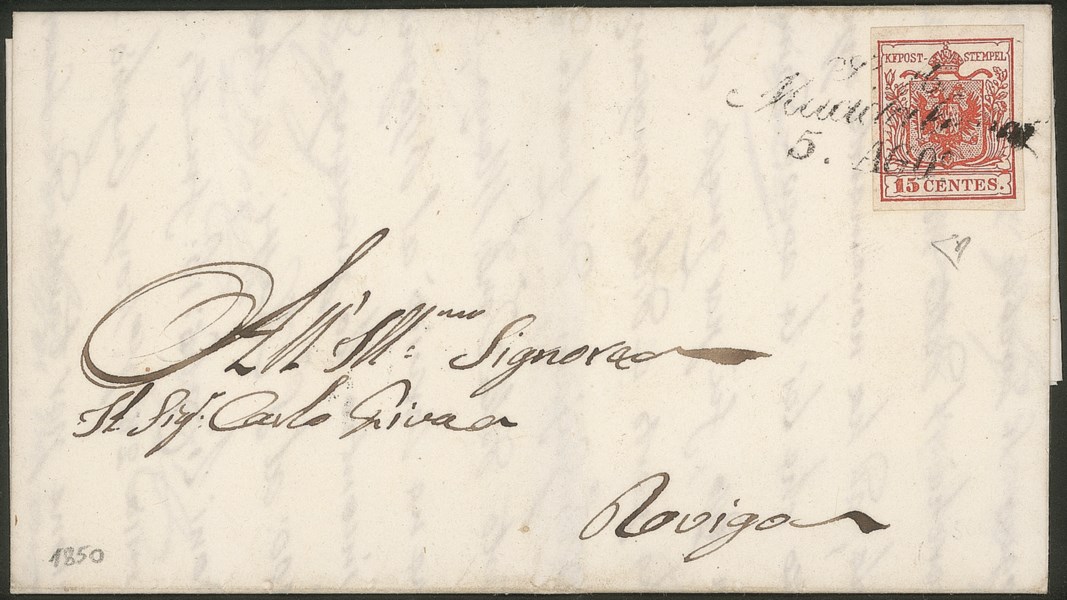 KKPOST-STEMPEL
15 CENTES.
5. AGO
All' Ill.mo Signore
Il Sig.r Carlo
Rovigo
1850